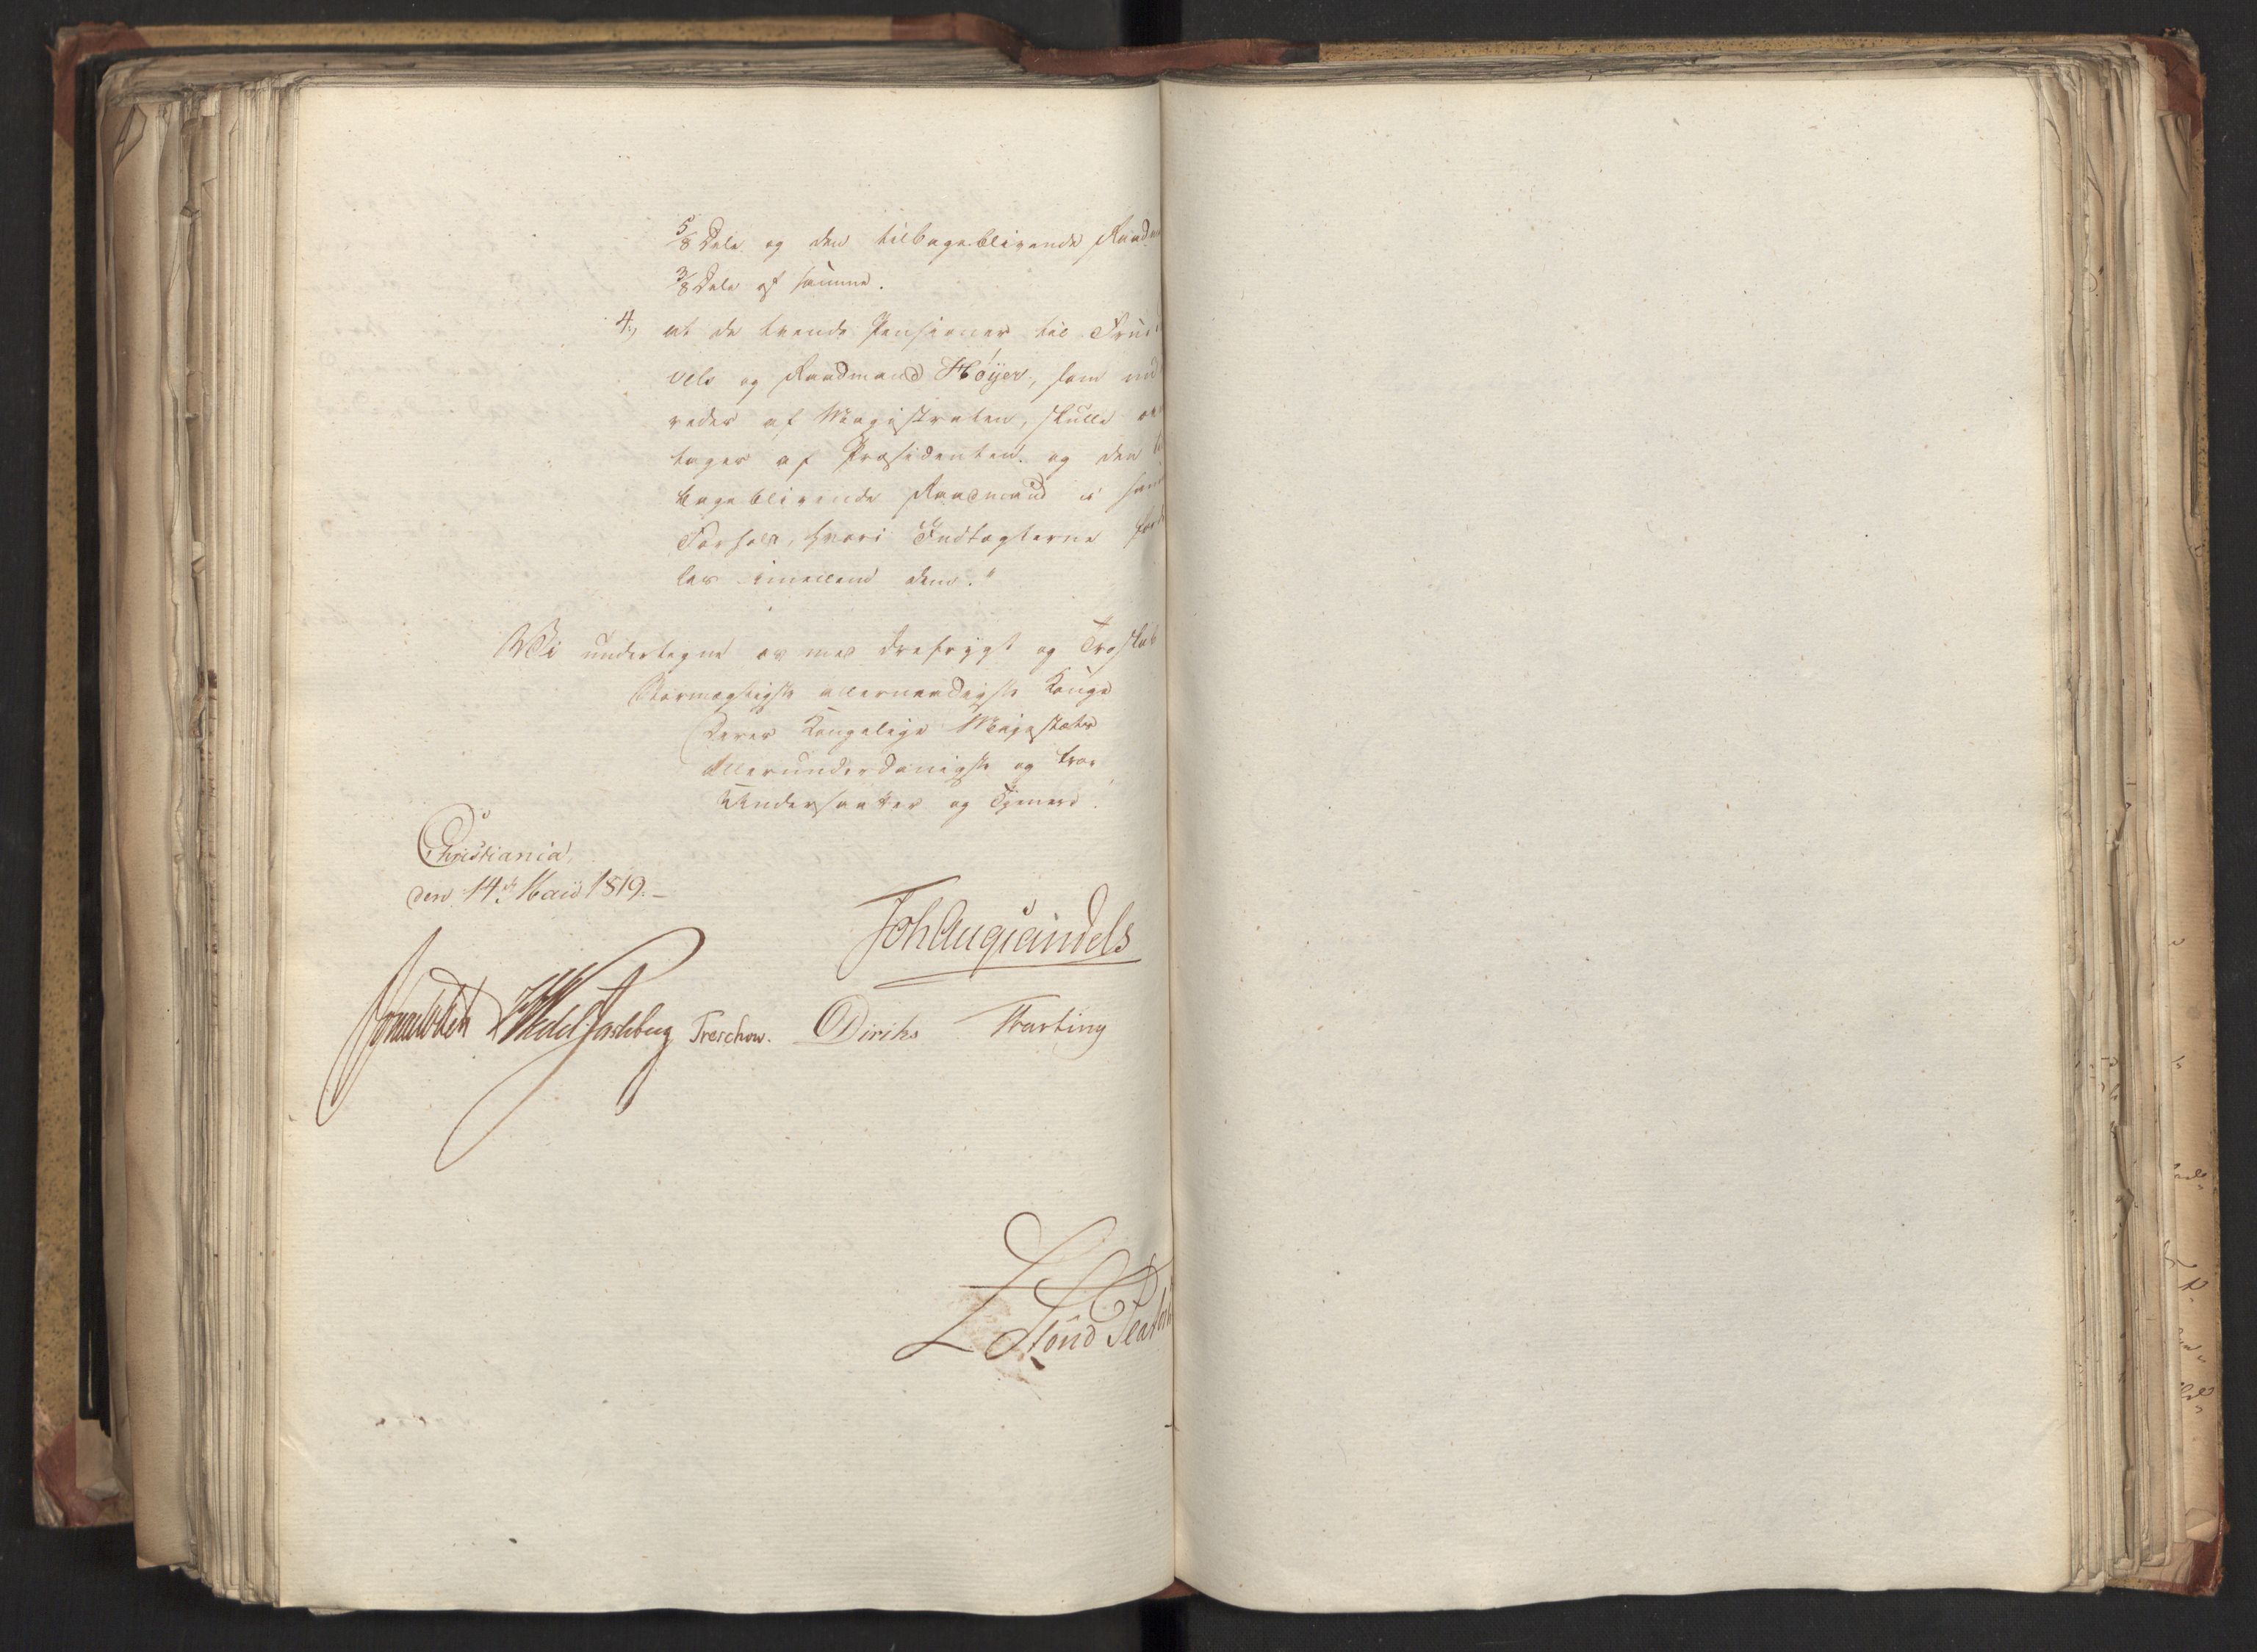 5/8 Dele og den tilbageblivende Raadm
3/8 Dele af samme.
4, at de tvende Pensioner til Frue
og Raadmand Höyer, som ud
redes af Magistraten, skulle
tages af Præsidenten og den
bageblivende Raadmand i sam
Forhold, hvori Indtægterne for
les imellem dem."
Vi undertegne os med Ærefrygt og Troskab
Stormægtigste allernaadigste Konge
Deres Kongelige Majestæts
Allerunderdanigste og troe
Undersaatter og Tjenere.
Christiania,
den 14de Maii 1819.
Joh Aug Sandels
Sommerhielm Wedel Jarlsberg Treschow. Diriks Fasting